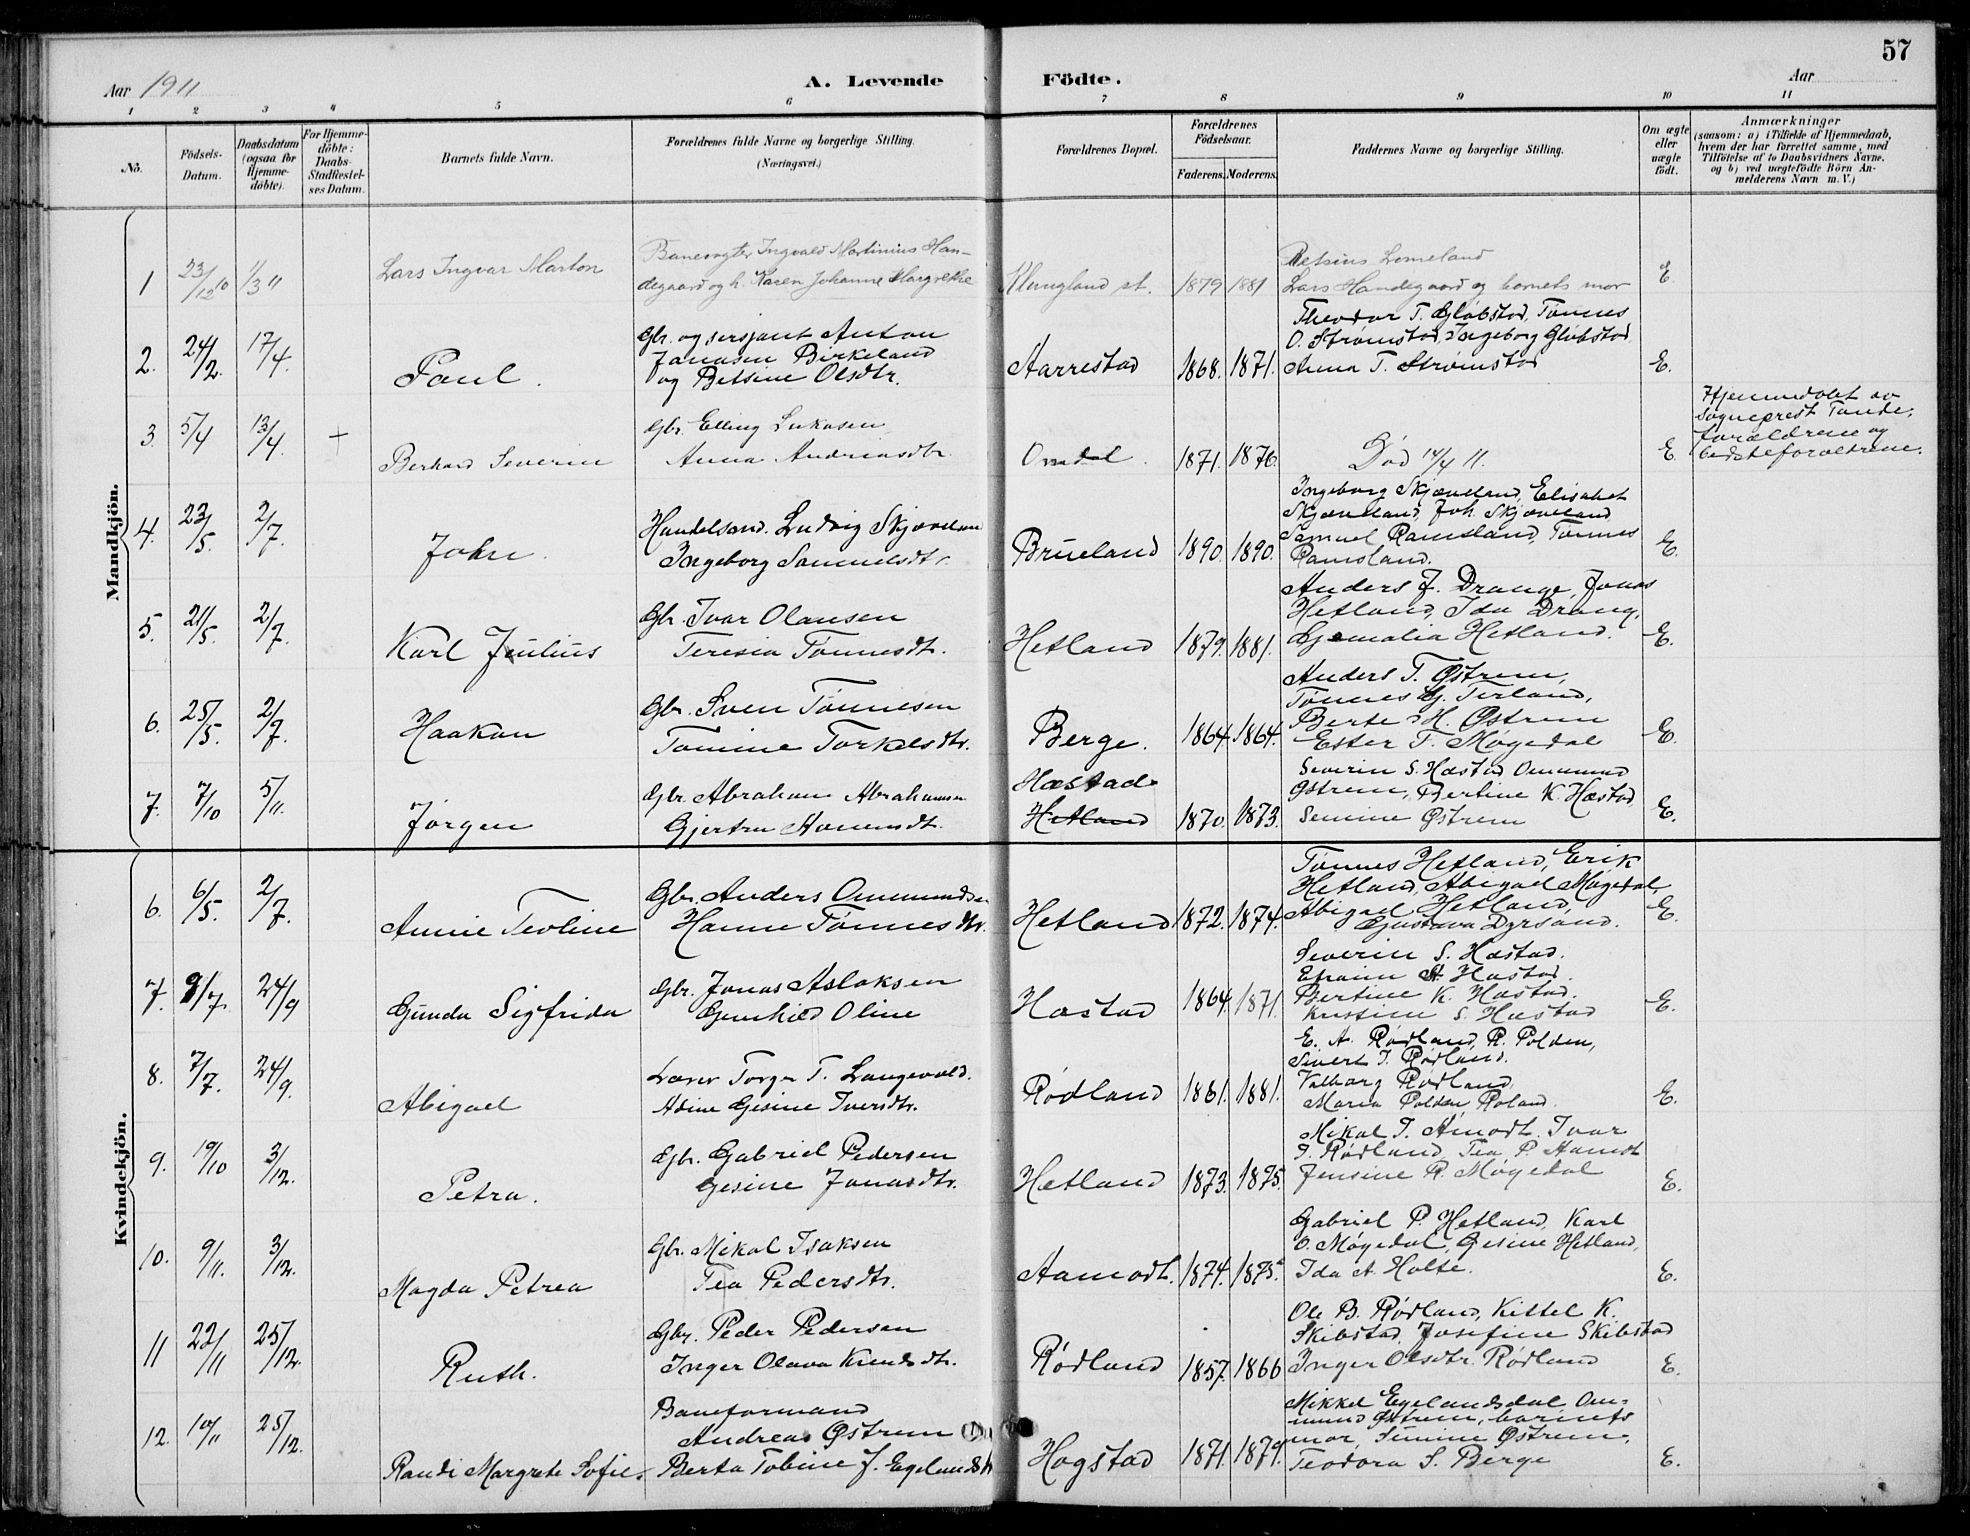 57
Aar 1911
A. Levende Födte.
Aar
1 2 3 4 5 6 7 8 9 10 11
No.
Födsels-Datum.
Daabsdatum (ogsaa for Hjemme-döbte).
For Hjemme-döbte: Daabs-Stadfæstel-ses Datum.
Barnets fulde Navn.
Forældrenes fulde Navne og borgerlige Stilling.
(Næringsvei.)
Forældrenes Bopæl.
Forældrenes Födselsaar.
Faderens. Moderens.
Faddernes Navne og borgerlige Stilling.
Om ægte eller uægte födt.
Anmærkninger
(saasom: a) i Tilfælde af Hjemmedaab,
hvem der har forrettet samme, med
Tilföielse af to Daabsvidners Navne.
og b) ved uægtefödte Börn An-
melderens Navn m. V.)
Mandkjön.
1 23/12 10 1/3 11 Lars Ingvar Marton
Banevogter Ingvald Martinius Han-
degaard og h. Karen Johanne Margrethe
Klungland st. 1879 1881
Lomeland
Lars Handegaard og barnets mor
E
2. 24/2. 17/4. Paul.
Gbr. og sersjant Anton
Jonasen Birkeland
og Betsine Olsdtr.
Aarrestad 1868. 1871.
Theodor T. Gløbstad, Tønnes
O. Strømstad, Ingeborg Gløbstad
Anna T. Strømstad
E.
3. 5/4 13/4. + Berhard Severin
Gbr. Elling Lukasen
Anna Andreasdtr.
Omdal. 1871. 1876.
Død 14/4 11.
E.
Hjemmedøbt av
Sogneprest Tande,
forældrene og
bedsteforældrene.
4. 23/5. 2/7. John.
Handelsmd. Ludvig Skjæveland
Ingeborg Samuelsdtr.
Brueland 1890. 1890.
Ingeborg Skjæveland, Elisabet
Skjæveland, Joh. Skjæveland
Samuel Ramsland, Tønnes
Ramsland.
E.
5. 21/5. 2/7. Karl Julius
Gbr. Ivar Olausen
Teresia Tønnesdtr.
Hetland 1879. 1881.
Anders J. Drange, Jonas
Hetland, Ida Drang,
Hetland.
E.
6. 25/5. 2/7. Haakon
Gbr. Sven Tønnesen
Tomine Torkelsdtr.
Berge. 1864. 1864.
Anders T. Østrem,
Tønnes G. Terland,
Berte H. Østrem
Ester T. Møgedal
E.
7. 7/10 5/11. Jørgen
Gbr. Abraham Abrahamsen
Hæstad
Hetland 1870. 1873.
Severin S. Hæstad Ommund
Østrem, Bertine K. Hæstad
Semine Østrem
E.
Kvindekjön.
6. 6/5. 2/7. Annie Teoline
Gbr. Anders Ommundsen
Hanne Tønnesdtr.
Hetland 1872. 1874.
Tønnes Hetland, Erik
Hetland, Abigael Møgedal
Abigael Hetland,
Gustava Dyrsand.
E.
7. 9/7. 24/9 Gunda Sigfrida
Gbr. Jonas Aslaksen
Gunhild Oline
Hæstad 1864. 1871.
Severin S. Hæstad.
Efraim A. Hæstad.
Bertine K. Hæstad.
Kristine S. Hæstad
E.
8. 7/7. 24/9. Abigael
Lærer Torger T. Langevold.
Adine Gesine Iversdtr.
Rødland 1881. 1881.
E. A. Rødland, R. Polden,
Sivert I. Rødland.
Valborg Rødland,
Maria Polden Roland.
E.
9. 19/10 3/12. Petra.
Gbr. Gabriel Pedersen
Gesine Jonasdtr.
Hetland 1873. 1875.
Mikal I. Amodt. Ivar
I. Rødland, Tea P. Aamodt
Jensine R. Møgedal
E.
10. 9/11. 3/12. Magda Petrea
Gbr. Mikal Isaksen
Tea Pedersdtr.
Aamodt. 1874. 1875.
Gabriel P. Hetland, Karl
O. Møgedal, Gesine Hetland,
Ida A. Holte.
E.
11 22/11 25/12. Ruth.
Gbr. Peder Pedersen
Inger Olava Knudsdtr.
Rødland 1857. 1866
Ole B. Rødland, Kittel K.
Skibstad, Josefine Skibstad
Inger Olsdtr. Rødland
E.
12. 10/11 25/12. Randi Margrete Sofie.
Baneformand
Andreas Østrem
Berta Tobine J. Egelandsd.
Hogstad 1871. 1879.
Mikkel Egelandsdal, Om-
mund Østrem, barnets
mor, Semine Østrem,
Teodora S. Berge
E.